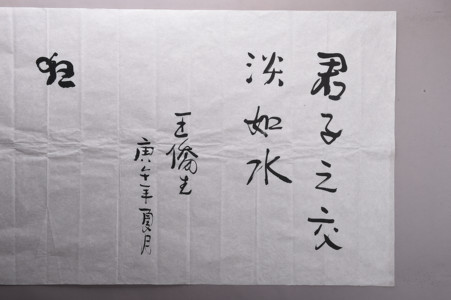 君子之交
淡如水
王僑生
庚午年夏月
狂